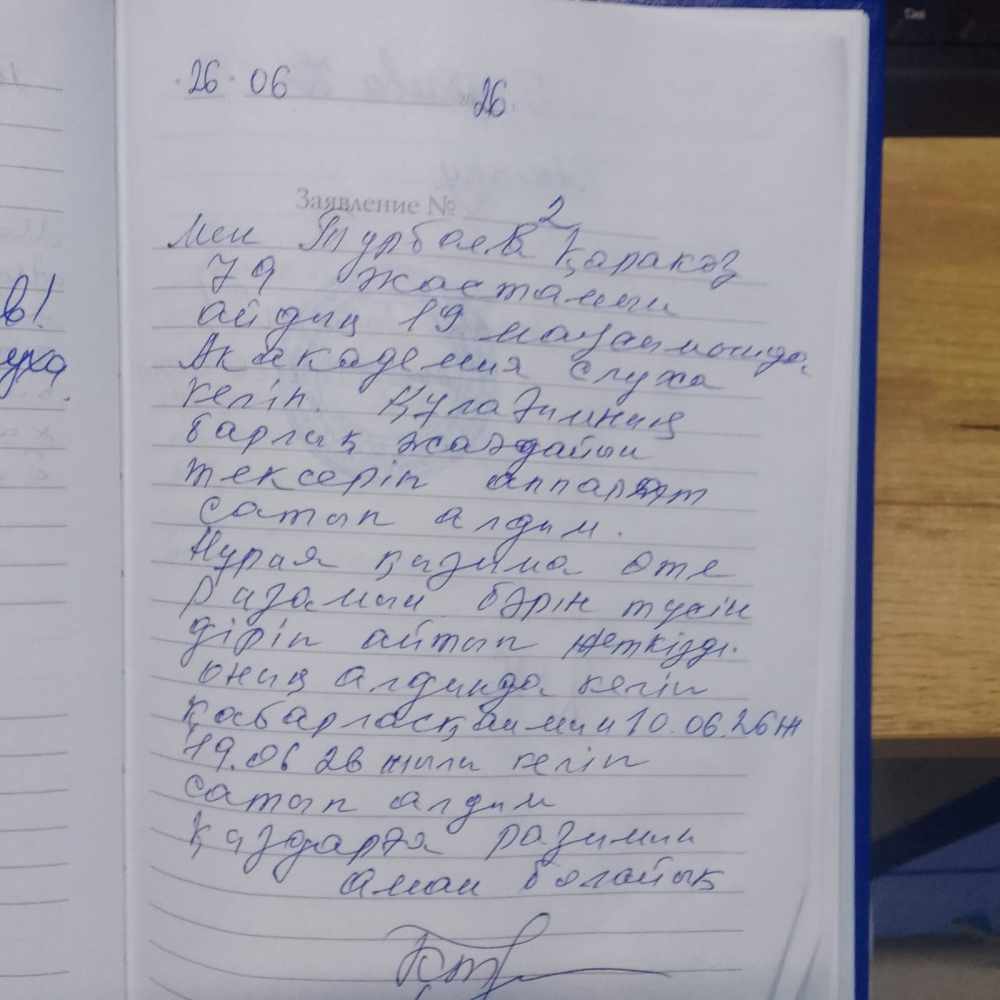 26. 06 26.
Заявление № 2
Мен Турбаева Қаракөз
79 жастамын
айдың 19 маусымында
Акакадемия слуха
келіп. Құлағымның
барлық жағдайын
тексеріп аппарат
сатып алдым.
Нурая қызыма өте
разымын бәрін түсін
діріп айтып жеткізді.
оның алдында келіп
қабарласқанмын 10.06.26ж
19.06 26 жылы келіп
сатып алдым
Қыздарға разымын
аман болайық
в!
уха